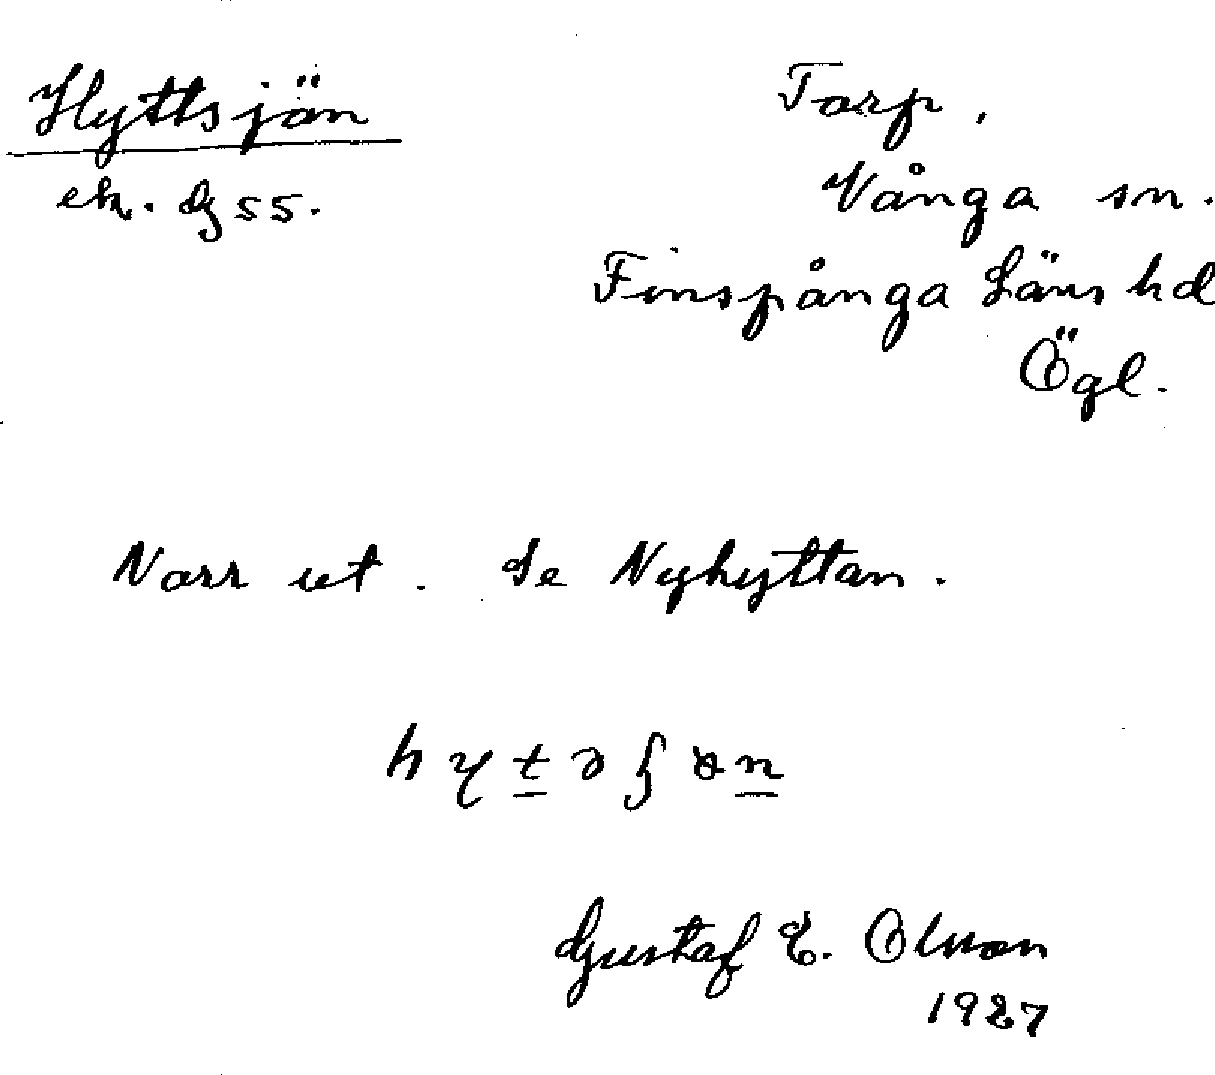 Hyttsjön
Torp.
ek. bl 55.
Vånga sn.
Finspånga Läns hd
Ögl.
Norr ut. Se Nyhyttan.
Gustaf E. Olsson
1927